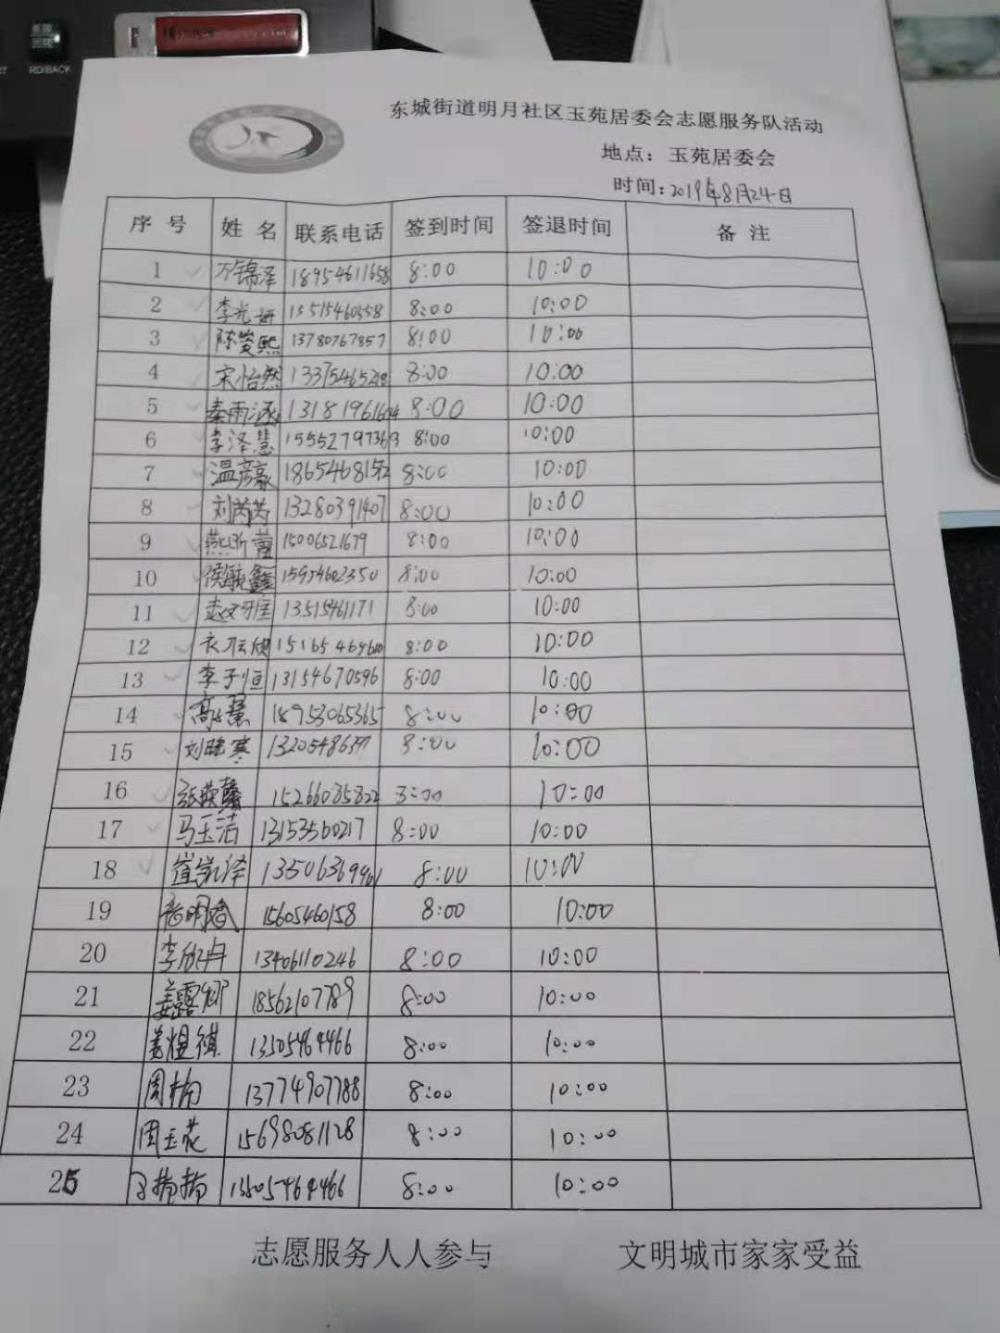 RD/BACK
东城街道明月社区玉苑居委会志愿服务队活动
地点：玉苑居委会
时间：2019年8月24日
序号 姓名 联系电话 签到时间 签退时间 备注
1 万锦泽 18954611658 8:00 10:00
2 李光妍 13515460558 8:00 10:00
3 陈奕熙 13780767857 8:00 10:00
4 宋怡然 8:00 10:00
5 秦雨涵 8:00 10:00
6 李泽慧 8:00 10:00
7 温彦豪 8:00 10:00
8 刘芮芮 13280391407 8:00 10:00
9 15006521679 8:00 10:00
10 侯毓鑫 15954602350 8:00 10:00
11 13515461171 8:00 10:00
12 8:00 10:00
13 李子恒 13154670596 8:00 10:00
14 18953065365 8:00 10:00
15 刘晓寒 8:00 10:00
16 15266085822 8:00 10:00
17 马玉洁 13153560217 8:00 10:00
18 崔凯泽 8:00 10:00
19 15605460158 8:00 10:00
20 李欣冉 13406110246 8:00 10:00
21 姜露卿 18562107789 8:00 10:00
22 姜煜祺 8:00 10:00
23 周楠 13774907788 8:00 10:00
24 周玉花 15698081128 8:00 10:00
25 8:00 10:00
志愿服务人人参与 文明城市家家受益